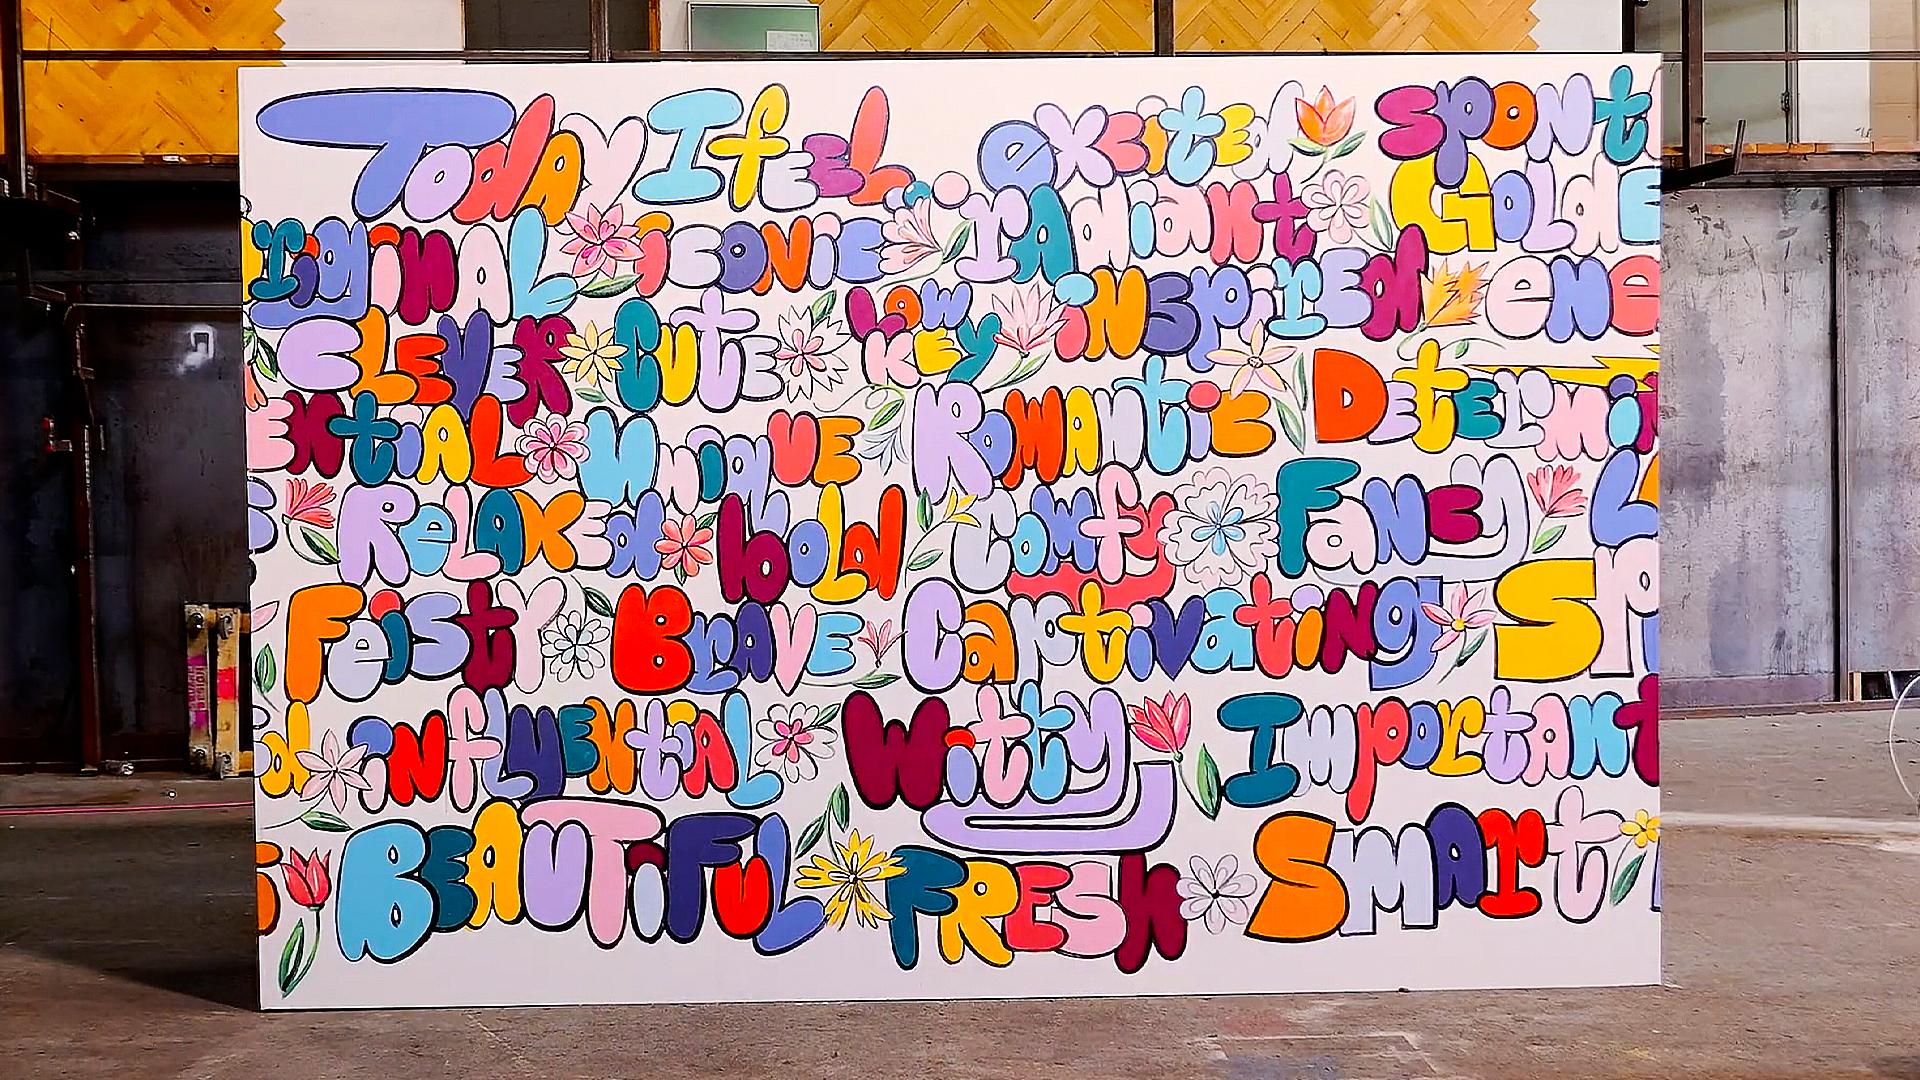 Today I feel... excited spont
original iconic radiant Golde
Clever Cute low key inspired ene
ential Unique Romantic Determin
Relaxed bold Comfy Fancy
Feisty Brave Captivating Sp
influential Witty Important
Beautiful Fresh Smart